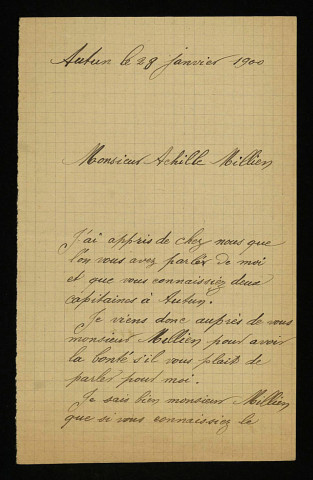 Autun le 28 janvier 1900
Monsieur Achille Millien
J'ai appris de chez nous que
l'on vous avez parler de moi
et que vous connaissiez deux
capitaines à Autun.
Je viens donc auprès de vous
monsieur Millien pour avoir
la bonté s'il vous plait de
parler pour moi.
Je sais bien monsieur Millien
que si vous connaissiez le